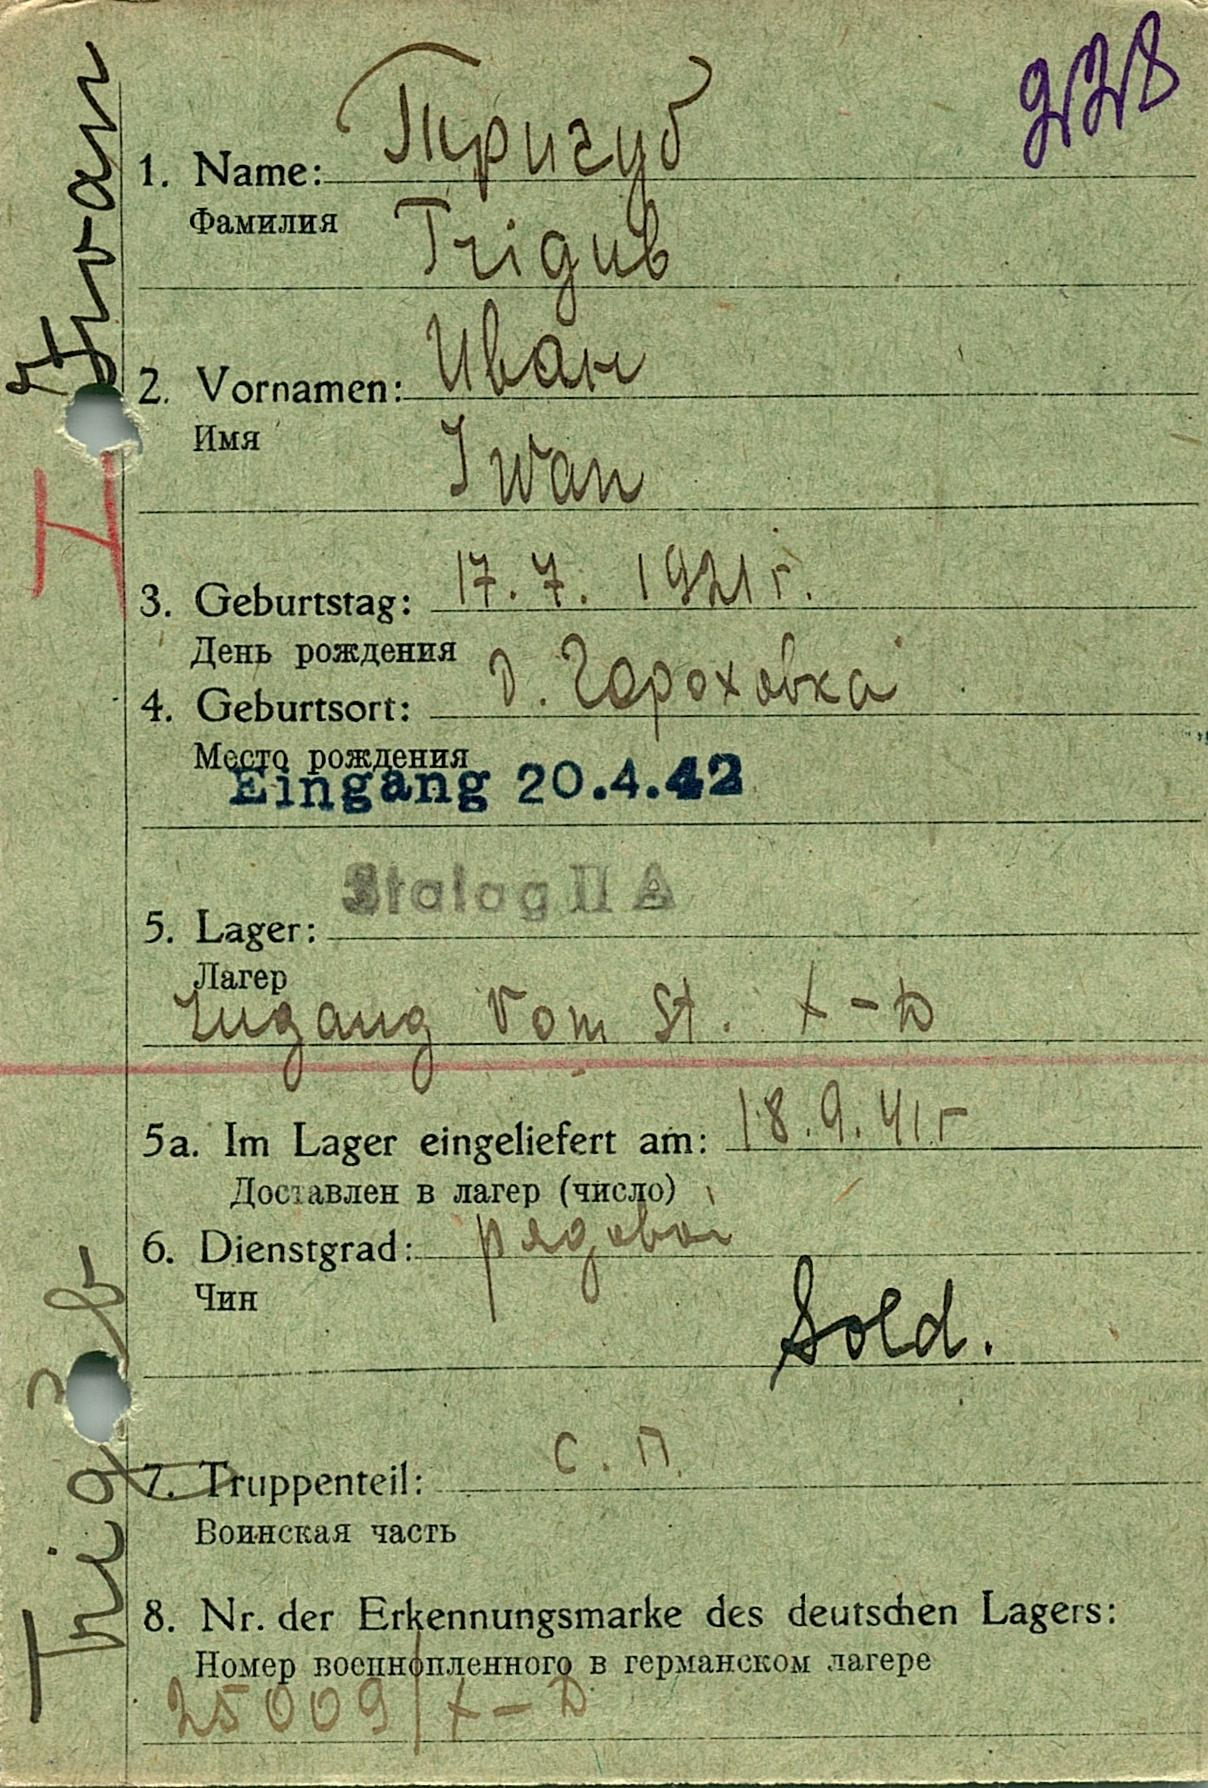 228
1. Name: Тригуб
Фамилия
Trigub
2. Vornamen: Иван
Имя
Iwan
3. Geburtstag: 17.7.1921 г.
День рождения
4. Geburtsort: д. Гороховка
Место рождения
Eingang 20.4.42
Stalag II A
5. Lager:
Лагер
Zugang vom St. X-D
5a. Im Lager eingeliefert am: 18.9.41 г
Доставлен в лагер (число)
6. Dienstgrad: рядовой
Чин
Sold.
7. Truppenteil: с. п.
Воинская часть
8. Nr. der Erkennungsmarke des deutschen Lagers:
Номер военнопленного в германском лагере
25009/X-D
Trigub, Iwan